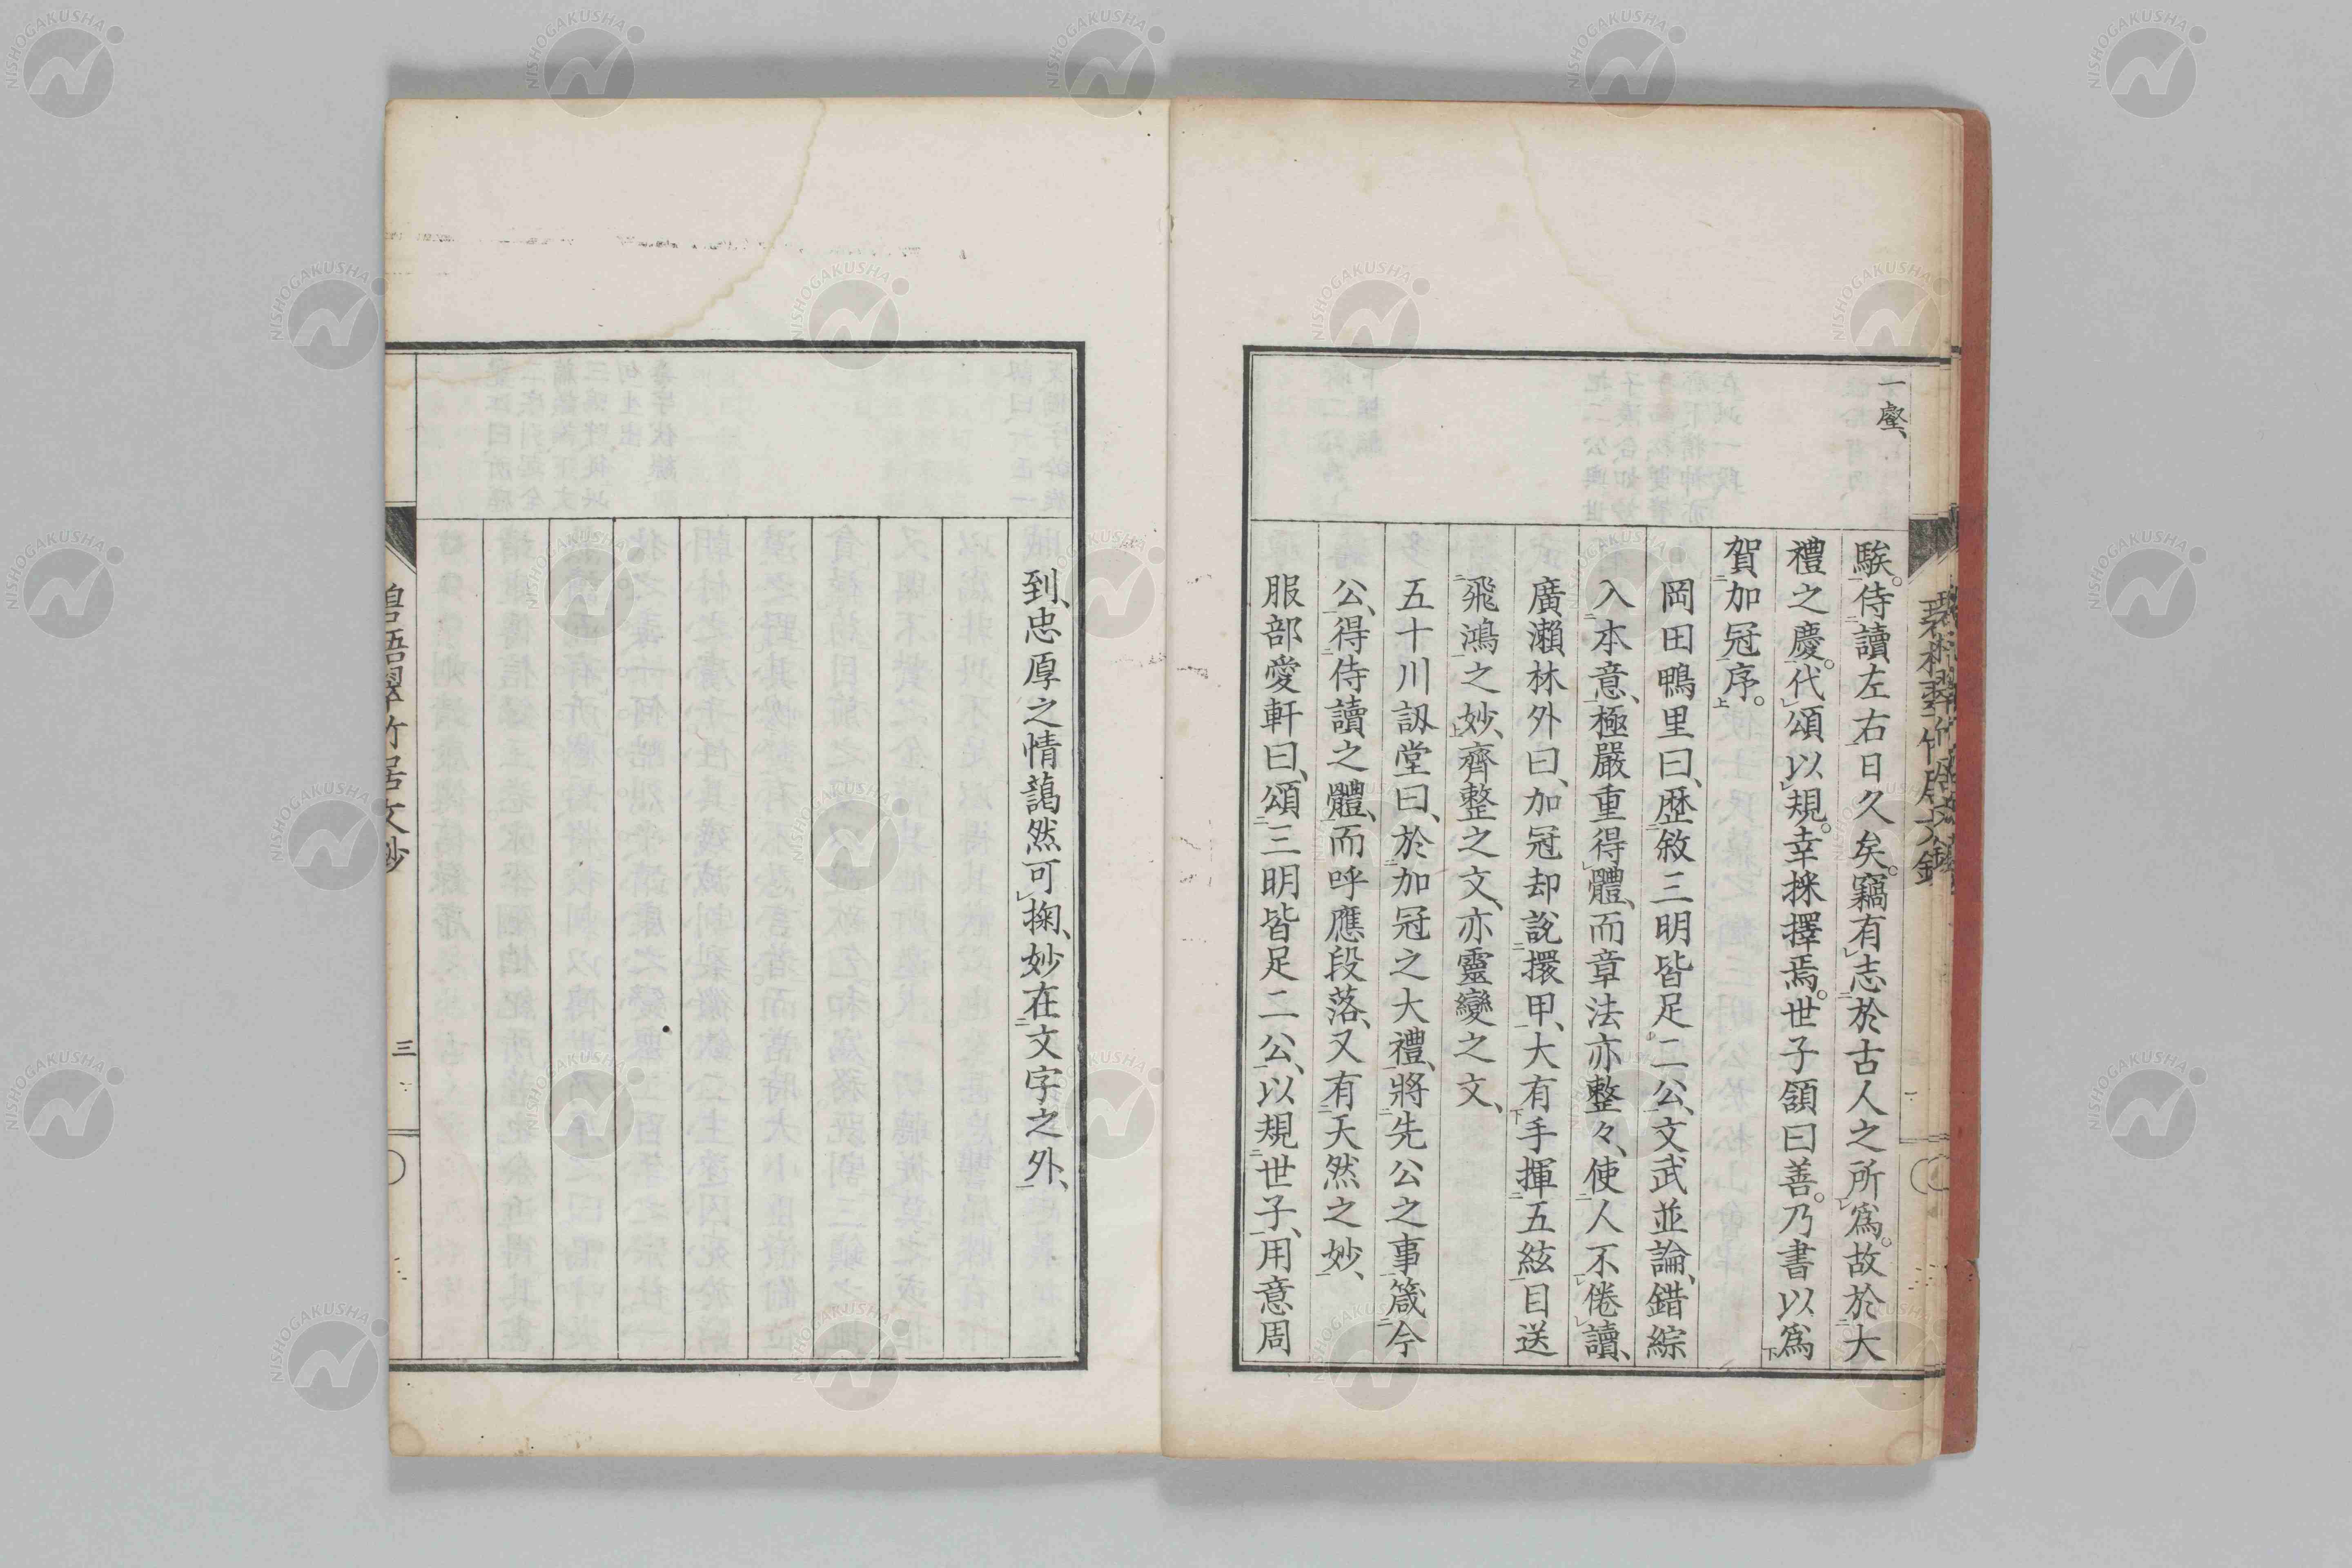 一壑、
騃。侍讀左右日久矣。竊有志於古人之所爲。故於大
禮之慶。代頌以規。幸採擇焉。世子頷曰善。乃書以爲
賀加冠序。
岡田鴨里曰、歴敘三明皆足二公、文武並論、錯綜
入本意、極嚴重得體、而章法亦整々、使人不倦讀、
廣瀨林外曰、加冠却說擐甲、大有手揮五絃目送
飛鴻之妙、齊整之文、亦靈變之文、
五十川訒堂曰、於加冠之大禮、將先公之事箴今
公、得侍讀之體、而呼應段落、又有天然之妙、
服部愛軒曰、頌三明皆足二公、以規世子、用意周
到、忠厚之情藹然可掬、妙在文字之外、
碧梧翠竹居文鈔
三
NISHOGAKUSHA